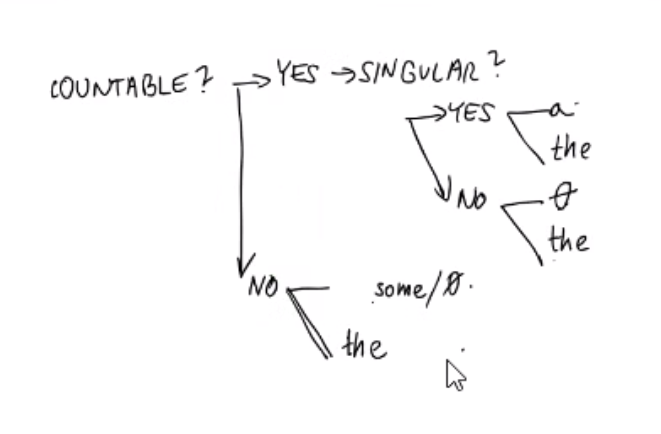 COUNTABLE? → YES → SINGULAR?
YES a
the
NO Ø
the
NO some/Ø.
the